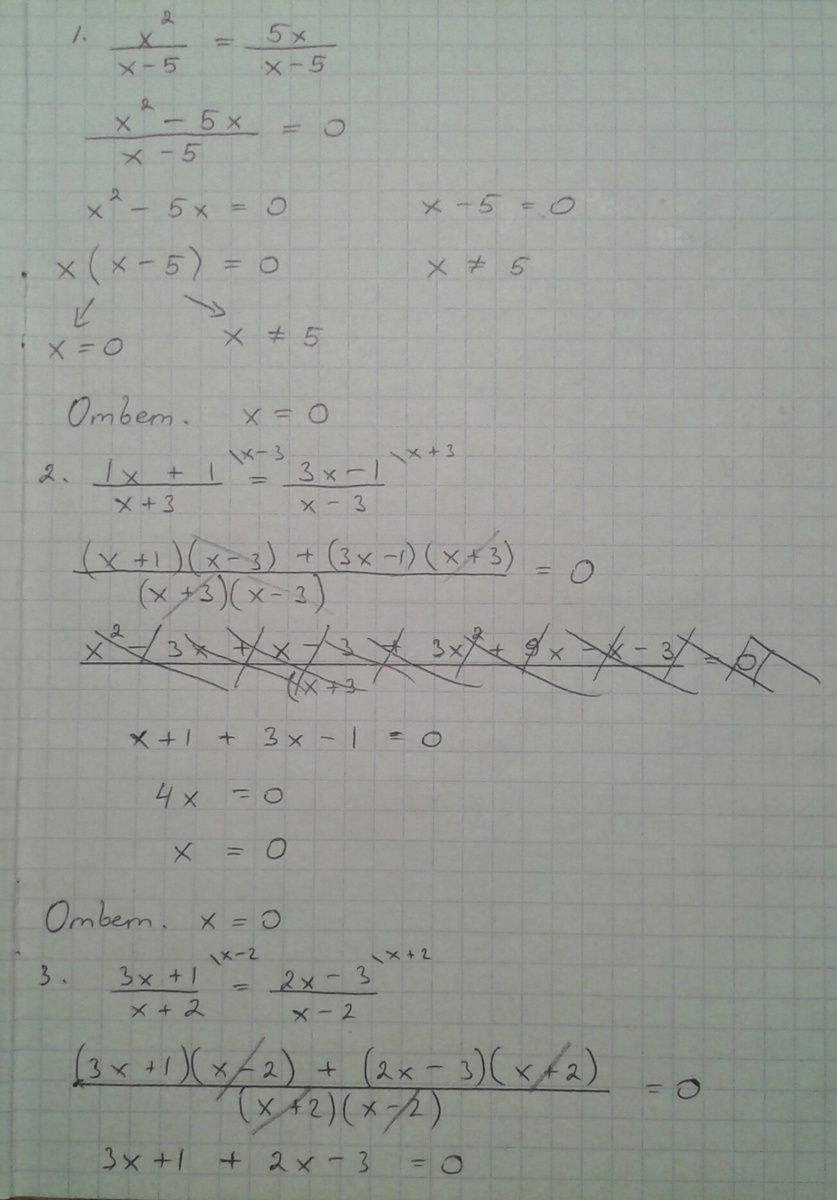 1. x²/(x-5) = 5x/(x-5)
(x² - 5x)/(x-5) = 0
x² - 5x = 0    x - 5 = 0
x(x-5) = 0    x ≠ 5
↙ ↘
x = 0    x ≠ 5
Ответ. x = 0
2. (1x + 1)/(x+3) \x-3 = (3x-1)/(x-3) \x+3
((x+1)(x-3) + (3x-1)(x+3))/((x+3)(x-3)) = 0
(x² - 3x + x - 3 + 3x² + 9x - x - 3)/((x+3 = 0
x+1 + 3x-1 = 0
4x = 0
x = 0
Ответ. x = 0
3. (3x+1)/(x+2) \x-2 = (2x-3)/(x-2) \x+2
((3x+1)(x-2) + (2x-3)(x+2))/((x+2)(x-2)) = 0
3x+1 + 2x-3 = 0